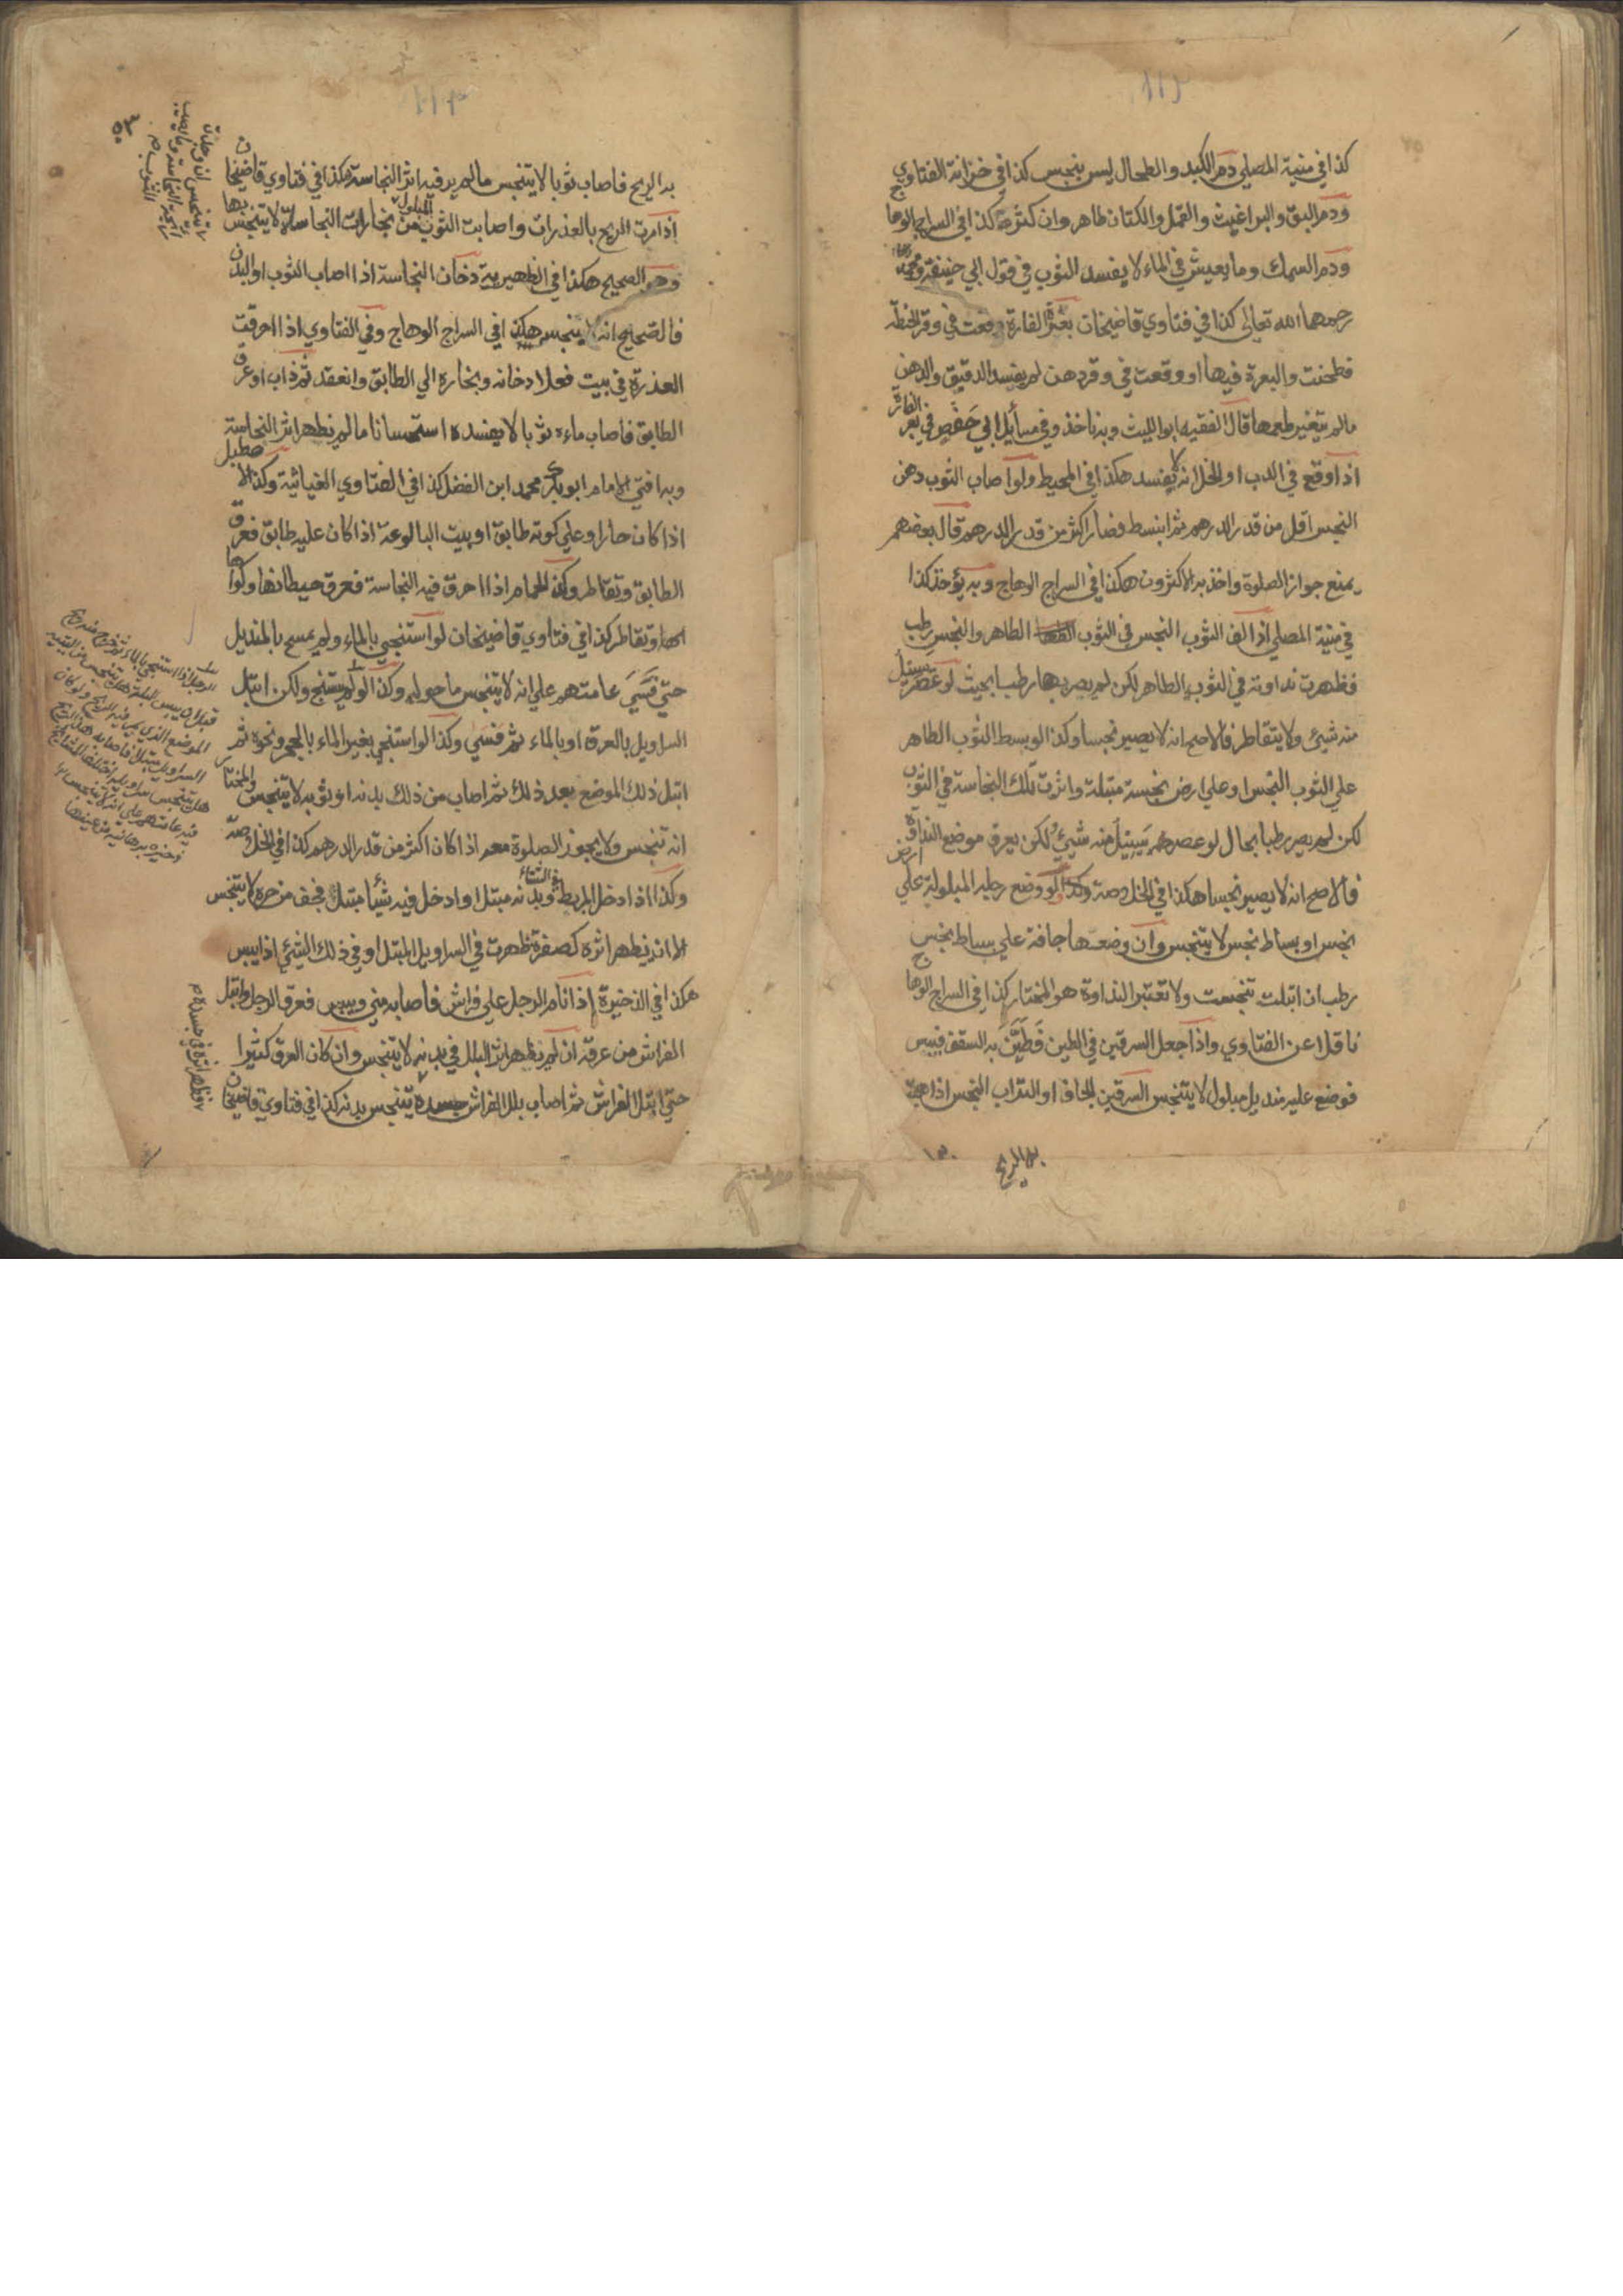 كذا في منية المصلي دم الكبد والطحال ليس بنجس كذا في خزانة الفتاوي
ودم البق والبراغيث والقمل والكتان طاهر وان كثر كذا في السراج الوهاج
ودم السمك وما يعيش في الماء لا يفسد الثوب في قول ابي حنيفة ومحمد
رحمهما الله تعالى كذا في فتاوي قاضيخان بعرة الفارة وقعت في وقر الحنطة
فطحنت والبعرة فيها او وقعت في وقر دهن لم يفسد الدقيق والدهن
مالم يتغير طعمها قال الفقيه ابو الليث وبه ناخذ وفي مسائل ابي حفص في بعر الفارة
اذا وقع في الدب او الخل انه لا يفسد هكذا في المحيط ولو اصاب الثوب دهن
النجس اقل من قدر الدرهم ثم انبسط فصار اكثر من قدر الدرهم قال بعضهم
يمنع جواز الصلوة واخذ به الاكثرون هكذا في السراج الوهاج وبه يؤخذ كذا
في منية المصلي اذا لف الثوب النجس في الثوب الطاهر والنجس رطب
فظهرت نداوته في الثوب الطاهر لكن لم يصر بها رطبا بحيث لو عصر يسيل
منه شيئ ولا يتقاطر فالاصح انه لا يصير نجسا وكذا لو بسط الثوب الطاهر
علي الثوب النجس او علي ارض نجسة مبتلة واثرت تلك النجاسة في الثوب
لكن لم يصر رطبا بحال لو عصر يسيل منه شيئ ولكن يعرف موضع النداوة
فالاصح انه لا يصير نجسا هكذا في الخلاصة وكذا لو وضع رجليه المبلولة علي ارض
نجس او بساط نجس لا يتنجس وان وضعها جافة علي بساط نجس
رطب ان ابتلت تنجست ولا تعتبر النداوة هو المختار كذا في السراج الوهاج
ناقلا عن الفتاوي واذا جعل السرقين في الطين فطين به السقف فيبس
فوضع عليه منديل مبلول لا يتنجس السرقين الجاف او التراب النجس اذا هبت
به الريح
به الريح فاصاب ثوبا لا يتنجس مالم ير فيه اثر النجاسة هكذا في فتاوي قاضيخان
اذا مرت الريح بالعذرات واصابت الثوب المبلول من بخارات النجاسات لا يتنجس بها
وهو الصحيح هكذا في الظهيرية دخان النجاسة اذا اصاب الثوب او البدن
فالصحيح انه لا ينجس هكذا في السراج الوهاج وفي الفتاوي اذا احرقت
العذرة في بيت فعلا دخانه وبخاره الي الطابق وانعقد ثم ذاب او عرق
الطابق فاصاب ماءه ثوبا لا يفسده استحسانا مالم يظهر اثر النجاسة
وبه افتي الامام ابو بكر محمد ابن الفضل كذا في الفتاوي الغياثية وكذا الاصطبل
اذا كان حارا وعلي كوته طابق او بيت البالوعة اذا كان عليه طابق فعرق
الطابق وتقاطر وكذا الحمام اذا احرق فيه النجاسة فعرق حيطانها وكواها
وتقاطر كذا في فتاوي قاضيخان لو استنجي بالماء ولم يمسح بالمنديل
حتي فسي عامتهم علي انه لا يتنجس ما حوله وكذا لو لم يستنج ولكن ابتل
السراويل بالعرق او بالماء ثم فسي وكذا لو استنجي بغير الماء بالحجر ونحوه ثم
ابتل ذلك الموضع بعد ذلك ثم اصاب من ذلك بدنه او ثوبه لا يتنجس والمختار
انه تنجس ولا يجوز الصلوة معه اذا كان اكثر من قدر الدرهم كذا في الخلاصة
وكذا اذا دخل المربط في الشتاء وبدنه مبتل او ادخل فيه شيئا مبتلا فجف من حره لا يتنجس
الا ان يظهر اثره كصفرة ظهرت في السراويل المبتل او في ذلك الشيئ اذا يبس
هكذا في الذخيرة اذا نام الرجل علي فراش فاصابه مني ويبس فعرق الرجل وابتل
الفراش من عرقه ان لم يظهر اثر البلل في بدنه لا يتنجس وان كان العرق كثيرا
حتي ابتل الفراش ثم اصاب بلل الفراش جسده يتنجس بدنه كذا في فتاوي قاضيخان
٥٣
الرجل اذا استنجي بالماء ثم خرج منه ريح
قبل ان ييبس البلة هل يتنجس من اليتيه
الموضع الذي يمر فيه الريح ولو كان
السراويل مبتلا فاصابه هذا الريح
هل يتنجس سراويله اختلف المشايخ
فيه عامتهم علي انه لا يتنجس